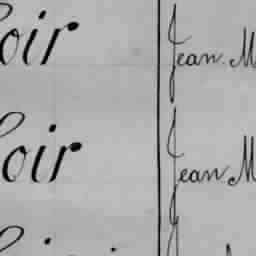 oir Jean M
oir Jean M